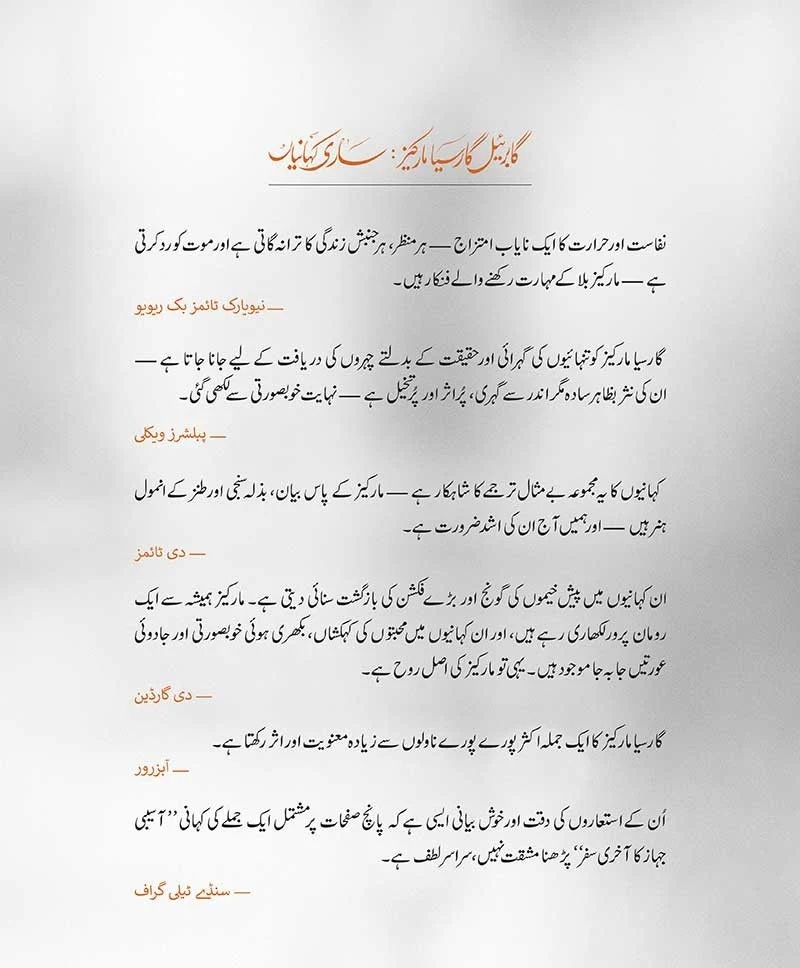 گابرئیل گارسیا مارکیز: ساری کہانیاں
نفاست اور حرارت کا ایک نایاب امتزاج — ہر منظر، ہر جنبش زندگی کا ترانہ گاتی ہے اور موت کو رد کرتی
ہے — مارکیز بلا کے مہارت رکھنے والے فنکار ہیں۔
— نیویارک ٹائمز بک ریویو
گارسیا مارکیز کو تنہائیوں کی گہرائی اور حقیقت کے بدلتے چہروں کی دریافت کے لیے جانا جاتا ہے —
ان کی نثر بظاہر سادہ مگر اندر سے گہری، پُراثر اور پُرتخیل ہے — نہایت خوبصورتی سے لکھی گئی۔
— پبلشرز ویکلی
کہانیوں کا یہ مجموعہ بے مثال ترجمے کا شاہکار ہے — مارکیز کے پاس بیان، بذلہ سنجی اور طنز کے انمول
ہنر ہیں — اور ہمیں آج ان کی اشد ضرورت ہے۔
— دی ٹائمز
ان کہانیوں میں پیش خیموں کی گونج اور بڑے فکشن کی بازگشت سنائی دیتی ہے۔ مارکیز ہمیشہ سے ایک
رومان پرور لکھاری رہے ہیں، اور ان کہانیوں میں محبتوں کی کہکشاں، بکھری ہوئی خوبصورتی اور جادوئی
عورتیں جا بہ جا موجود ہیں۔ یہی تو مارکیز کی اصل روح ہے۔
— دی گارڈین
گارسیا مارکیز کا ایک جملہ اکثر پورے پورے ناولوں سے زیادہ معنویت اور اثر رکھتا ہے۔
— آبزرور
اُن کے استعاروں کی دقت اور خوش بیانی ایسی ہے کہ پانچ صفحات پر مشتمل ایک جملے کی کہانی ’’آسیبی
جہاز کا آخری سفر‘‘ پڑھنا مشقت نہیں، سراسر لطف ہے۔
— سنڈے ٹیلی گراف